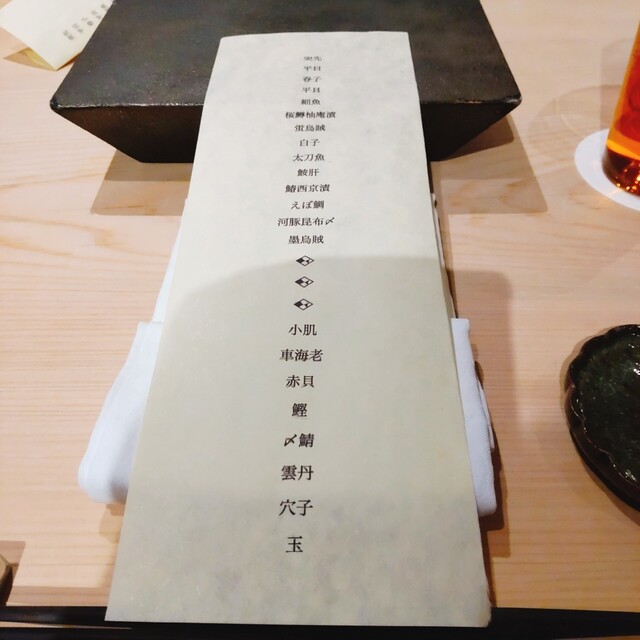 突先
平目
春子
平貝
細魚
桜鱒柚庵漬
蛍烏賊
白子
太刀魚
鮟肝
鰆西京漬
えぼ鯛
河豚昆布〆
墨烏賊
小肌
車海老
赤貝
鰹
〆鯖
雲丹
穴子
玉